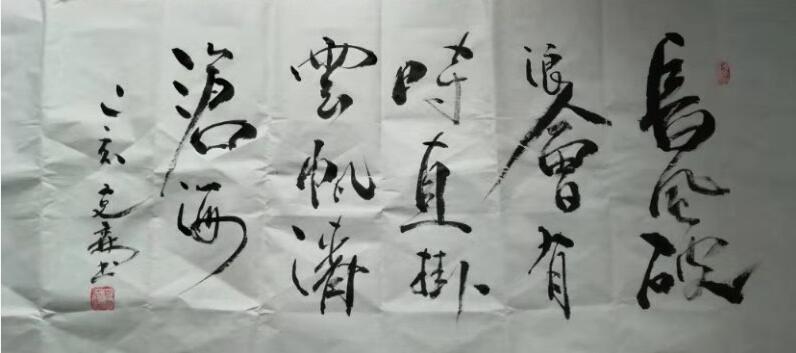 長風破
浪會有
時直掛
雲帆濟
滄海
乙亥克森書